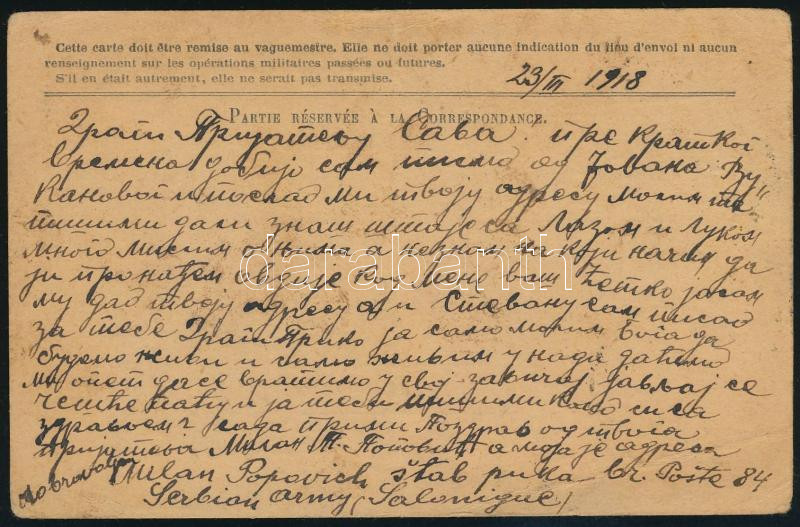 Cette carte doit être remise au vaguemestre. Elle ne doit porter aucune indication du lieu d'envoi ni aucun
renseignement sur les opérations militaires passées ou futures.
S'il en était autrement, elle ne serait pas transmise.
23/III 1918
PARTIE RÉSERVÉE À LA CORRESPONDANCE.
Драги Пријатељу Сава. пре кратког
времена добијо сам писмо од Јована Ву„
кановој и послао ми твоју адресу молим те
пишими дали знаш штаје са Лазом и Луком
много мислим о њима а незнам на који начин да
ји пронађем овдије код мене ваш Ћетко јасам
му дао твоју адресу а и Стевану сам писао
за тебе Драги Прико ја само молим бога да
будемо живи и само живим у нада даћемо
ми опет дасе вратимо у свој завичај јављај се
чешће паћу и ја теби пишими како си са
здрављем? сада прими Поздрав од твога
пријатеља Милан П. Поповић а моја је адреса
Dobrovoljac Milan Popovich štab puka br Pošte 84
Serbian army (Salonique)
darabanth